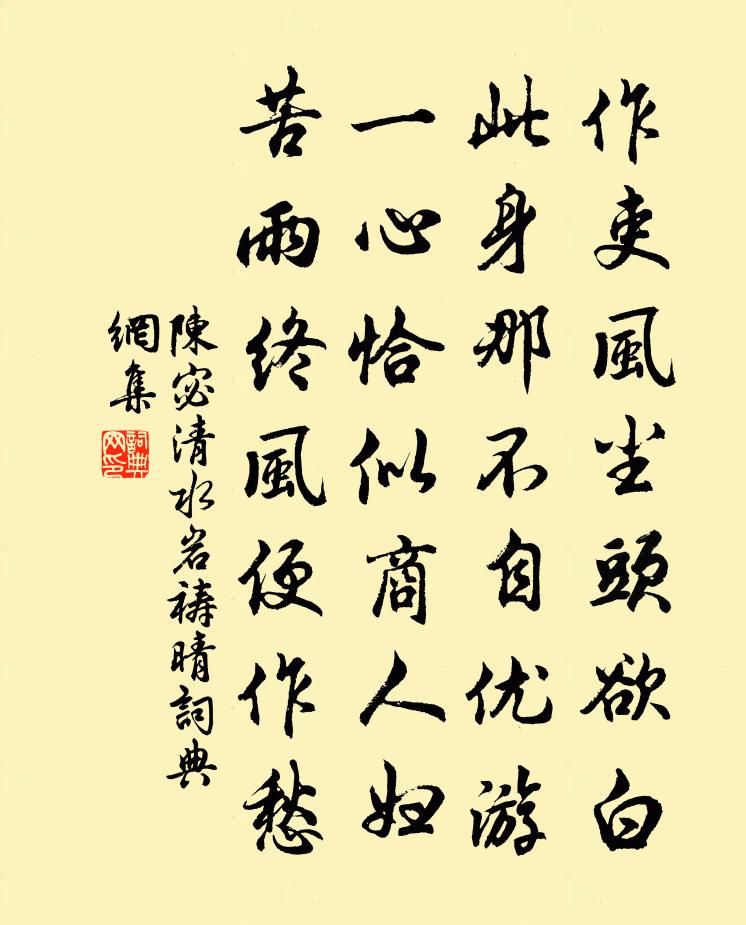 作吏風尘頭欲白
此身那不自优游
一心恰似商人妇
苦雨終風便作愁
陳宓清水岩禱晴詞典
網集
詞典
网印